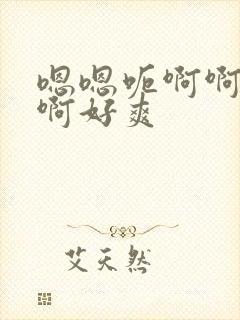 嗯嗯呃啊啊
啊好爽
艾天然